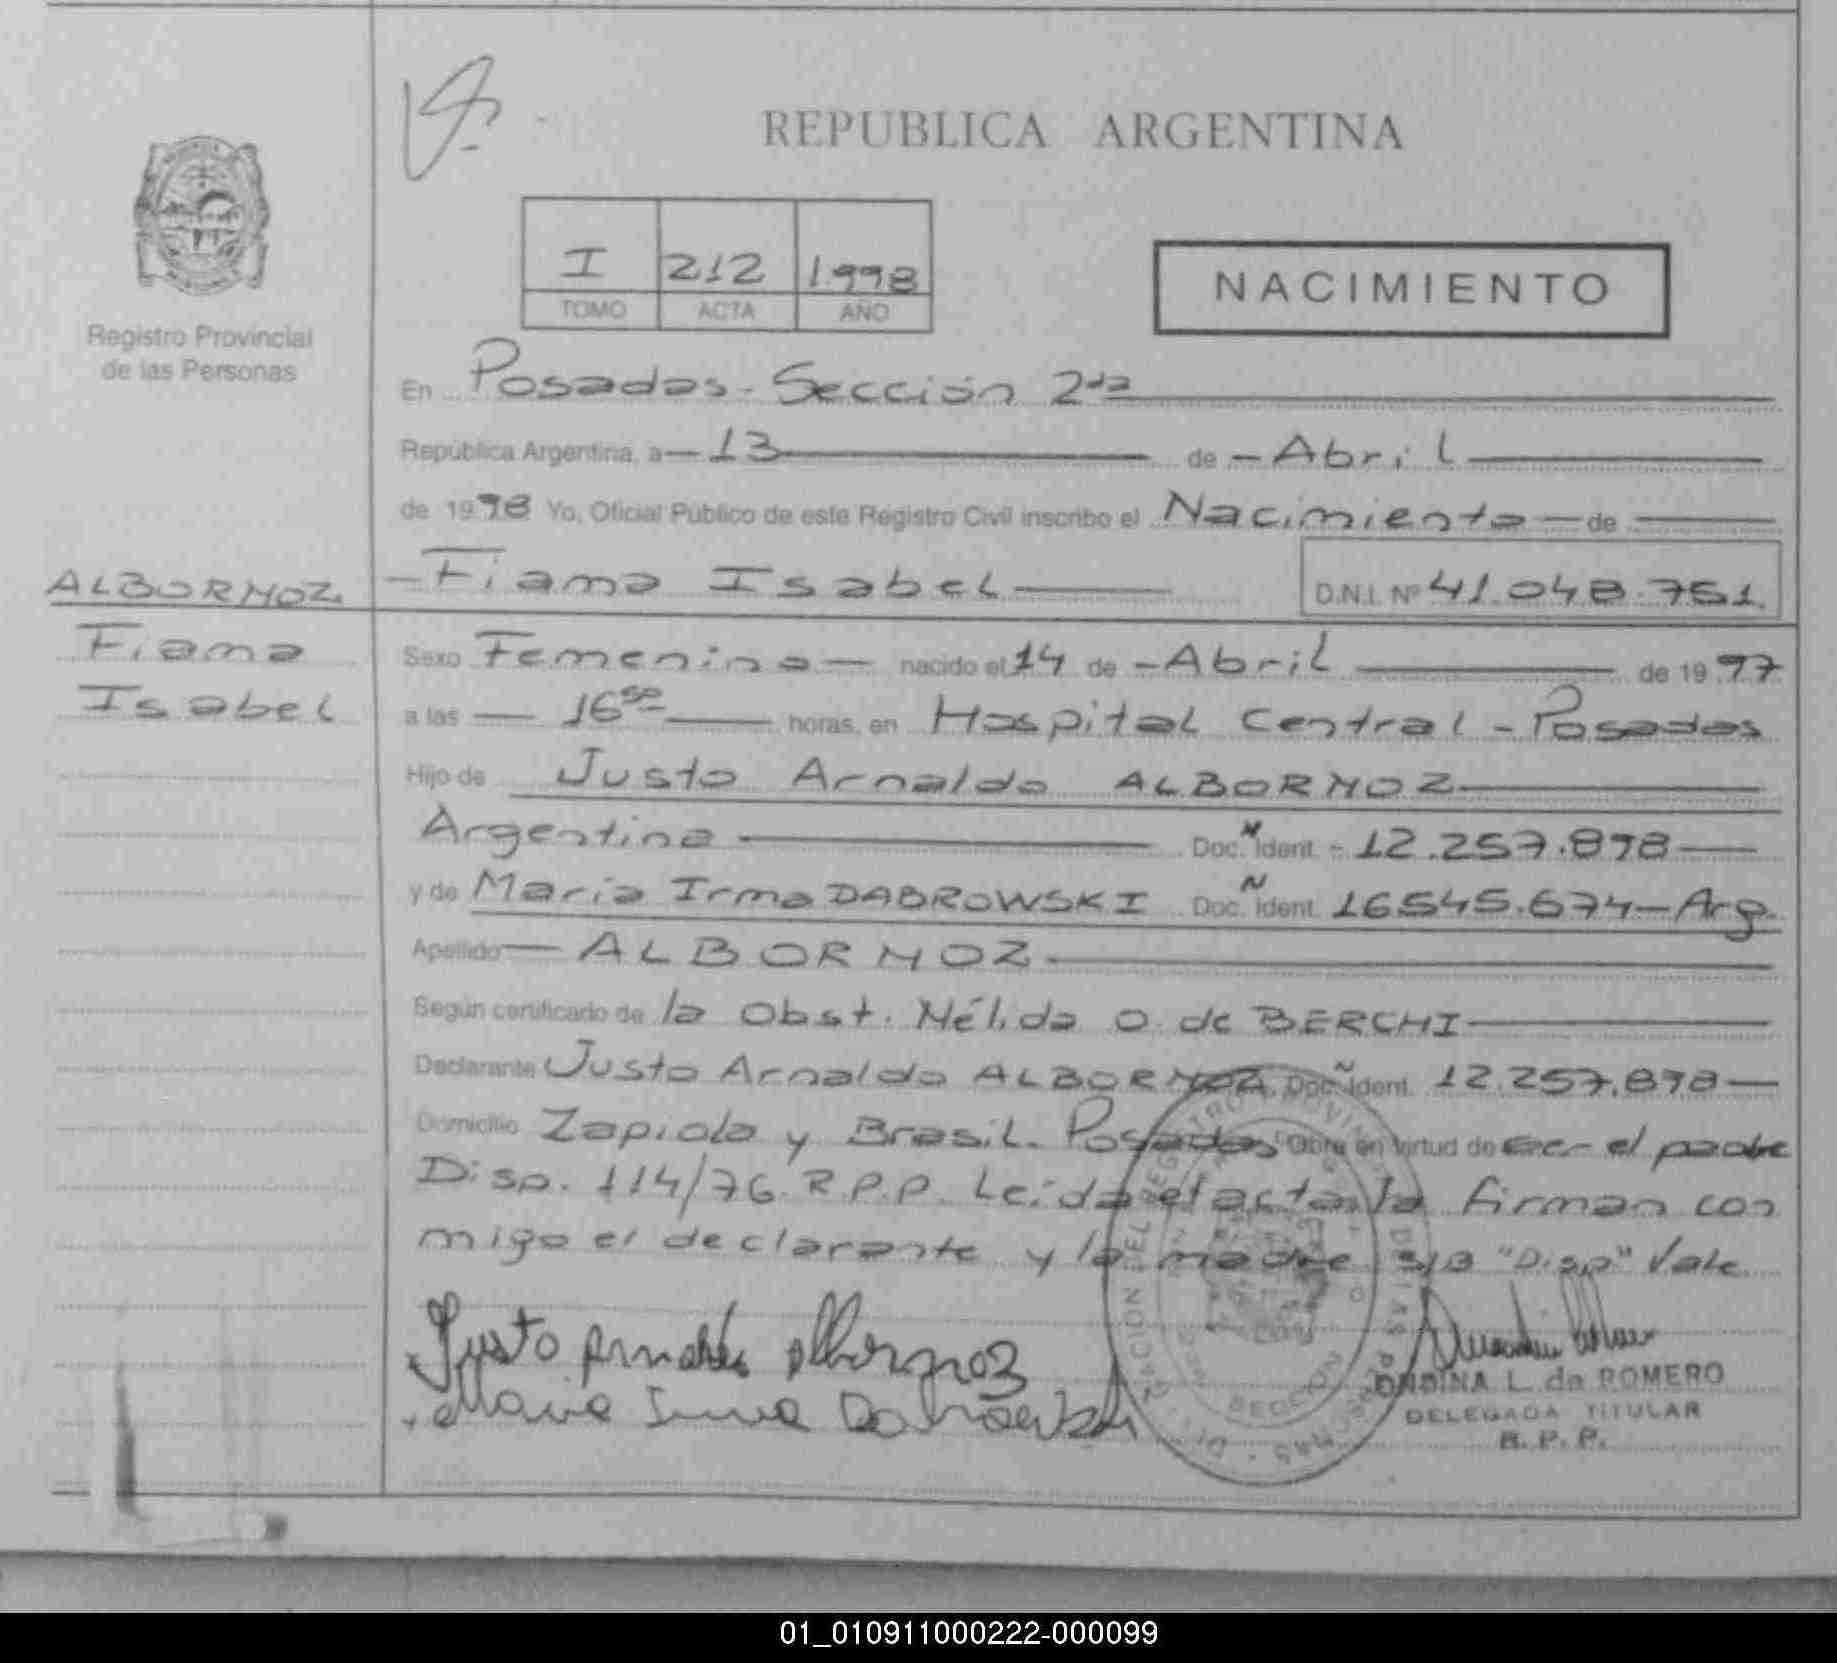 REPUBLICA ARGENTINA
I 212 1.998
TOMO ACTA AÑO
NACIMIENTO
Registro Provincial
de las Personas
En Posadas - Sección 2da
República Argentina, a 13 de Abril
de 1998 Yo, Oficial Público de este Registro Civil inscribo el Nacimiento de
Fiama Isabel D.N.I. Nº 41.048.751
ALBORNOZ
Fiama
Isabel
Sexo Femenino nacido el 14 de Abril de 1997
a las 16 horas, en Hospital Central - Posadas
Hijo de Justo Arnaldo ALBORNOZ
Argentina Doc. Ident. 12.257.898
y de María Irma DABROWSKI Doc. Ident. 16545.674 - Arg.
Apellido ALBORNOZ
Según certificado de la Obst. Nélida O. de BERCHI
Declarante Justo Arnaldo ALBORNOZ Doc. Ident. 12.257.898
Domicilio Zapiola y Brasil. Posadas Obra en virtud de ser el padre
Disp. 114/76 R.P.P. Leída el acta la firman con
migo el declarante y la madre S/B "Disp" Vale
Justo Arnaldo Albornoz
Maria Irma Dabrowski
ONDINA L. de ROMERO
DELEGADA TITULAR
R. P. P.
01_010911000222-000099